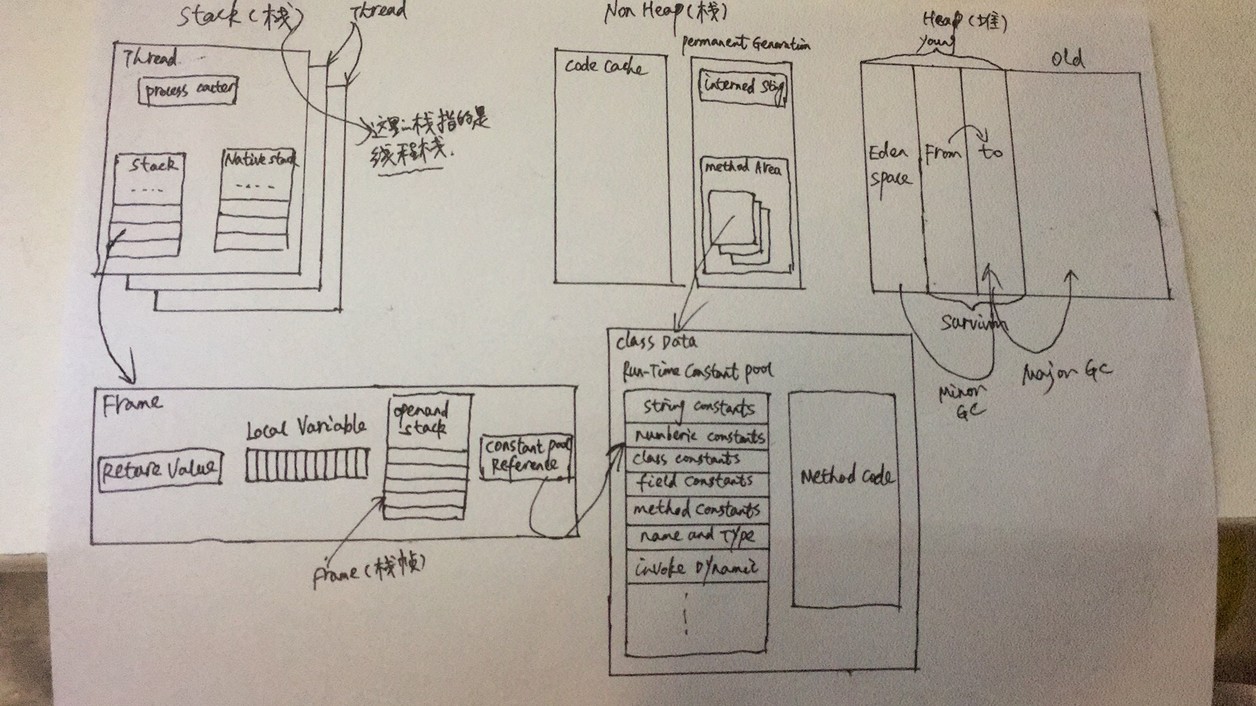 Stack(栈)
Thread
Thread
process counter
Stack
Native stack
这里的栈指的是
线程栈.
Non Heap(栈)
permanent Generation
code cache
interned Sting
method Area
Heap(堆)
young
Old
Eden
space
From
to
Survivor
Minor
GC
Major GC
Frame
Return Value
Local Variable
openand
stack
constant pool
Reference
Frame(栈帧)
class Data
Run-Time Constant pool
string constants
numberic constants
class constants
field constants
method constants
name and Type
invoke Dynamic
Method Code